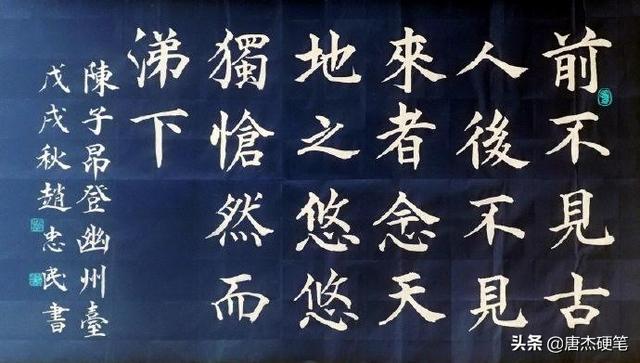 前不見古
人後不見
來者念天
地之悠悠
獨愴然而
涕下
陳子昂登幽州臺
戊戌秋趙忠民書
头条 @唐杰硬笔